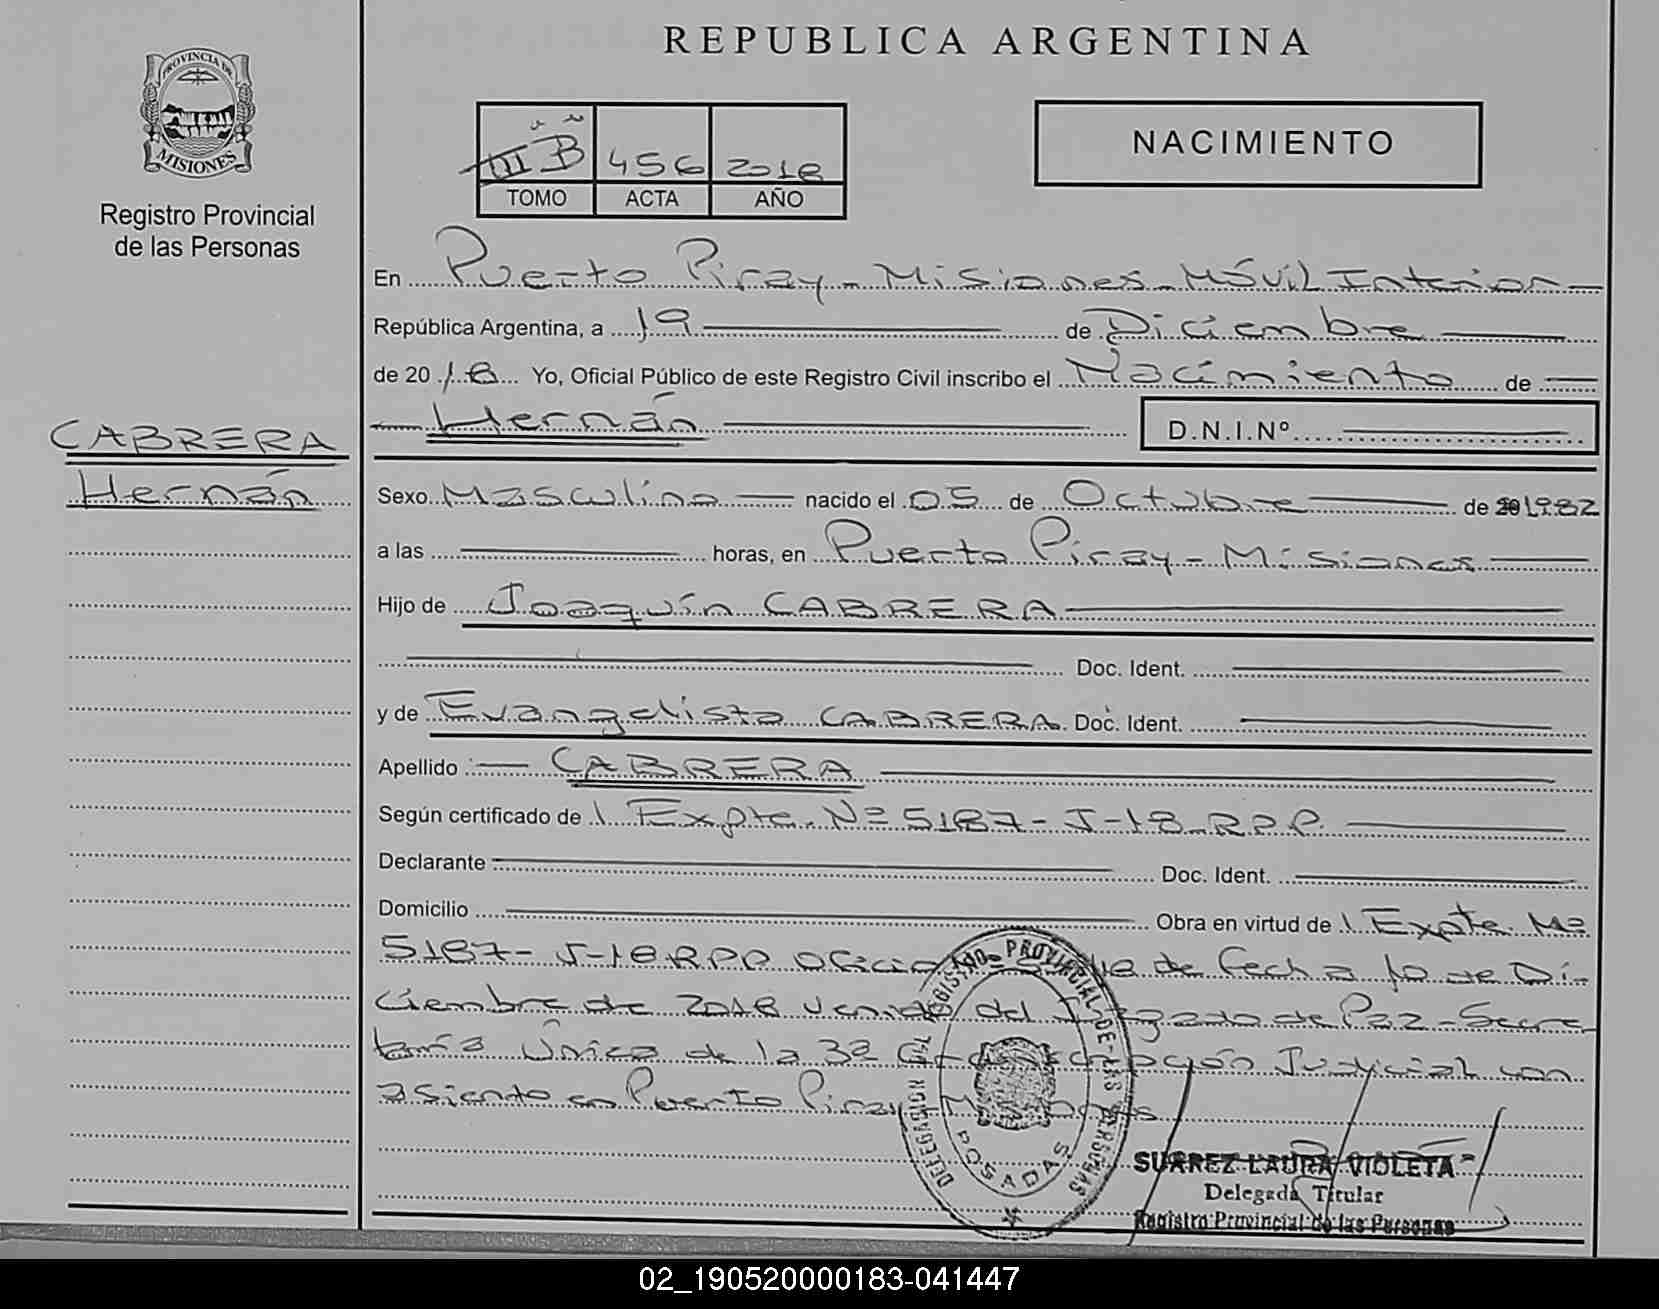 REPUBLICA ARGENTINA
PROVINCIA DE
MISIONES
Registro Provincial
de las Personas
III B 456 2018
TOMO ACTA AÑO
NACIMIENTO
En Puerto Piray - Misiones - Móvil Interior
República Argentina, a 19 de Diciembre
de 2018 Yo, Oficial Público de este Registro Civil inscribo el Nacimiento de
Hernán D.N.I.Nº
CABRERA
Hernán
Sexo Masculino nacido el 05 de Octubre de 1982
a las horas, en Puerto Piray - Misiones
Hijo de Joaquín CABRERA
Doc. Ident.
y de Evangelista CABRERA Doc. Ident.
Apellido CABRERA
Según certificado de Expte. Nº 5187-J-18 RPP.
Declarante Doc. Ident.
Domicilio Obra en virtud de Expte. Nº
5187-J-18 RPP Oficio de fecha 10 de Di-
ciembre de 2018 venido del Juzgado de Paz - Secre
taría Única de la 3ª Circunscripción Judicial con
asiento en Puerto Piray Misiones
REGISTRO PROVINCIAL DE LAS PERSONAS
DELEGACION
POSADAS
SUAREZ LAURA VIOLETA
Delegada Titular
Registro Provincial de las Personas
02_190520000183-041447